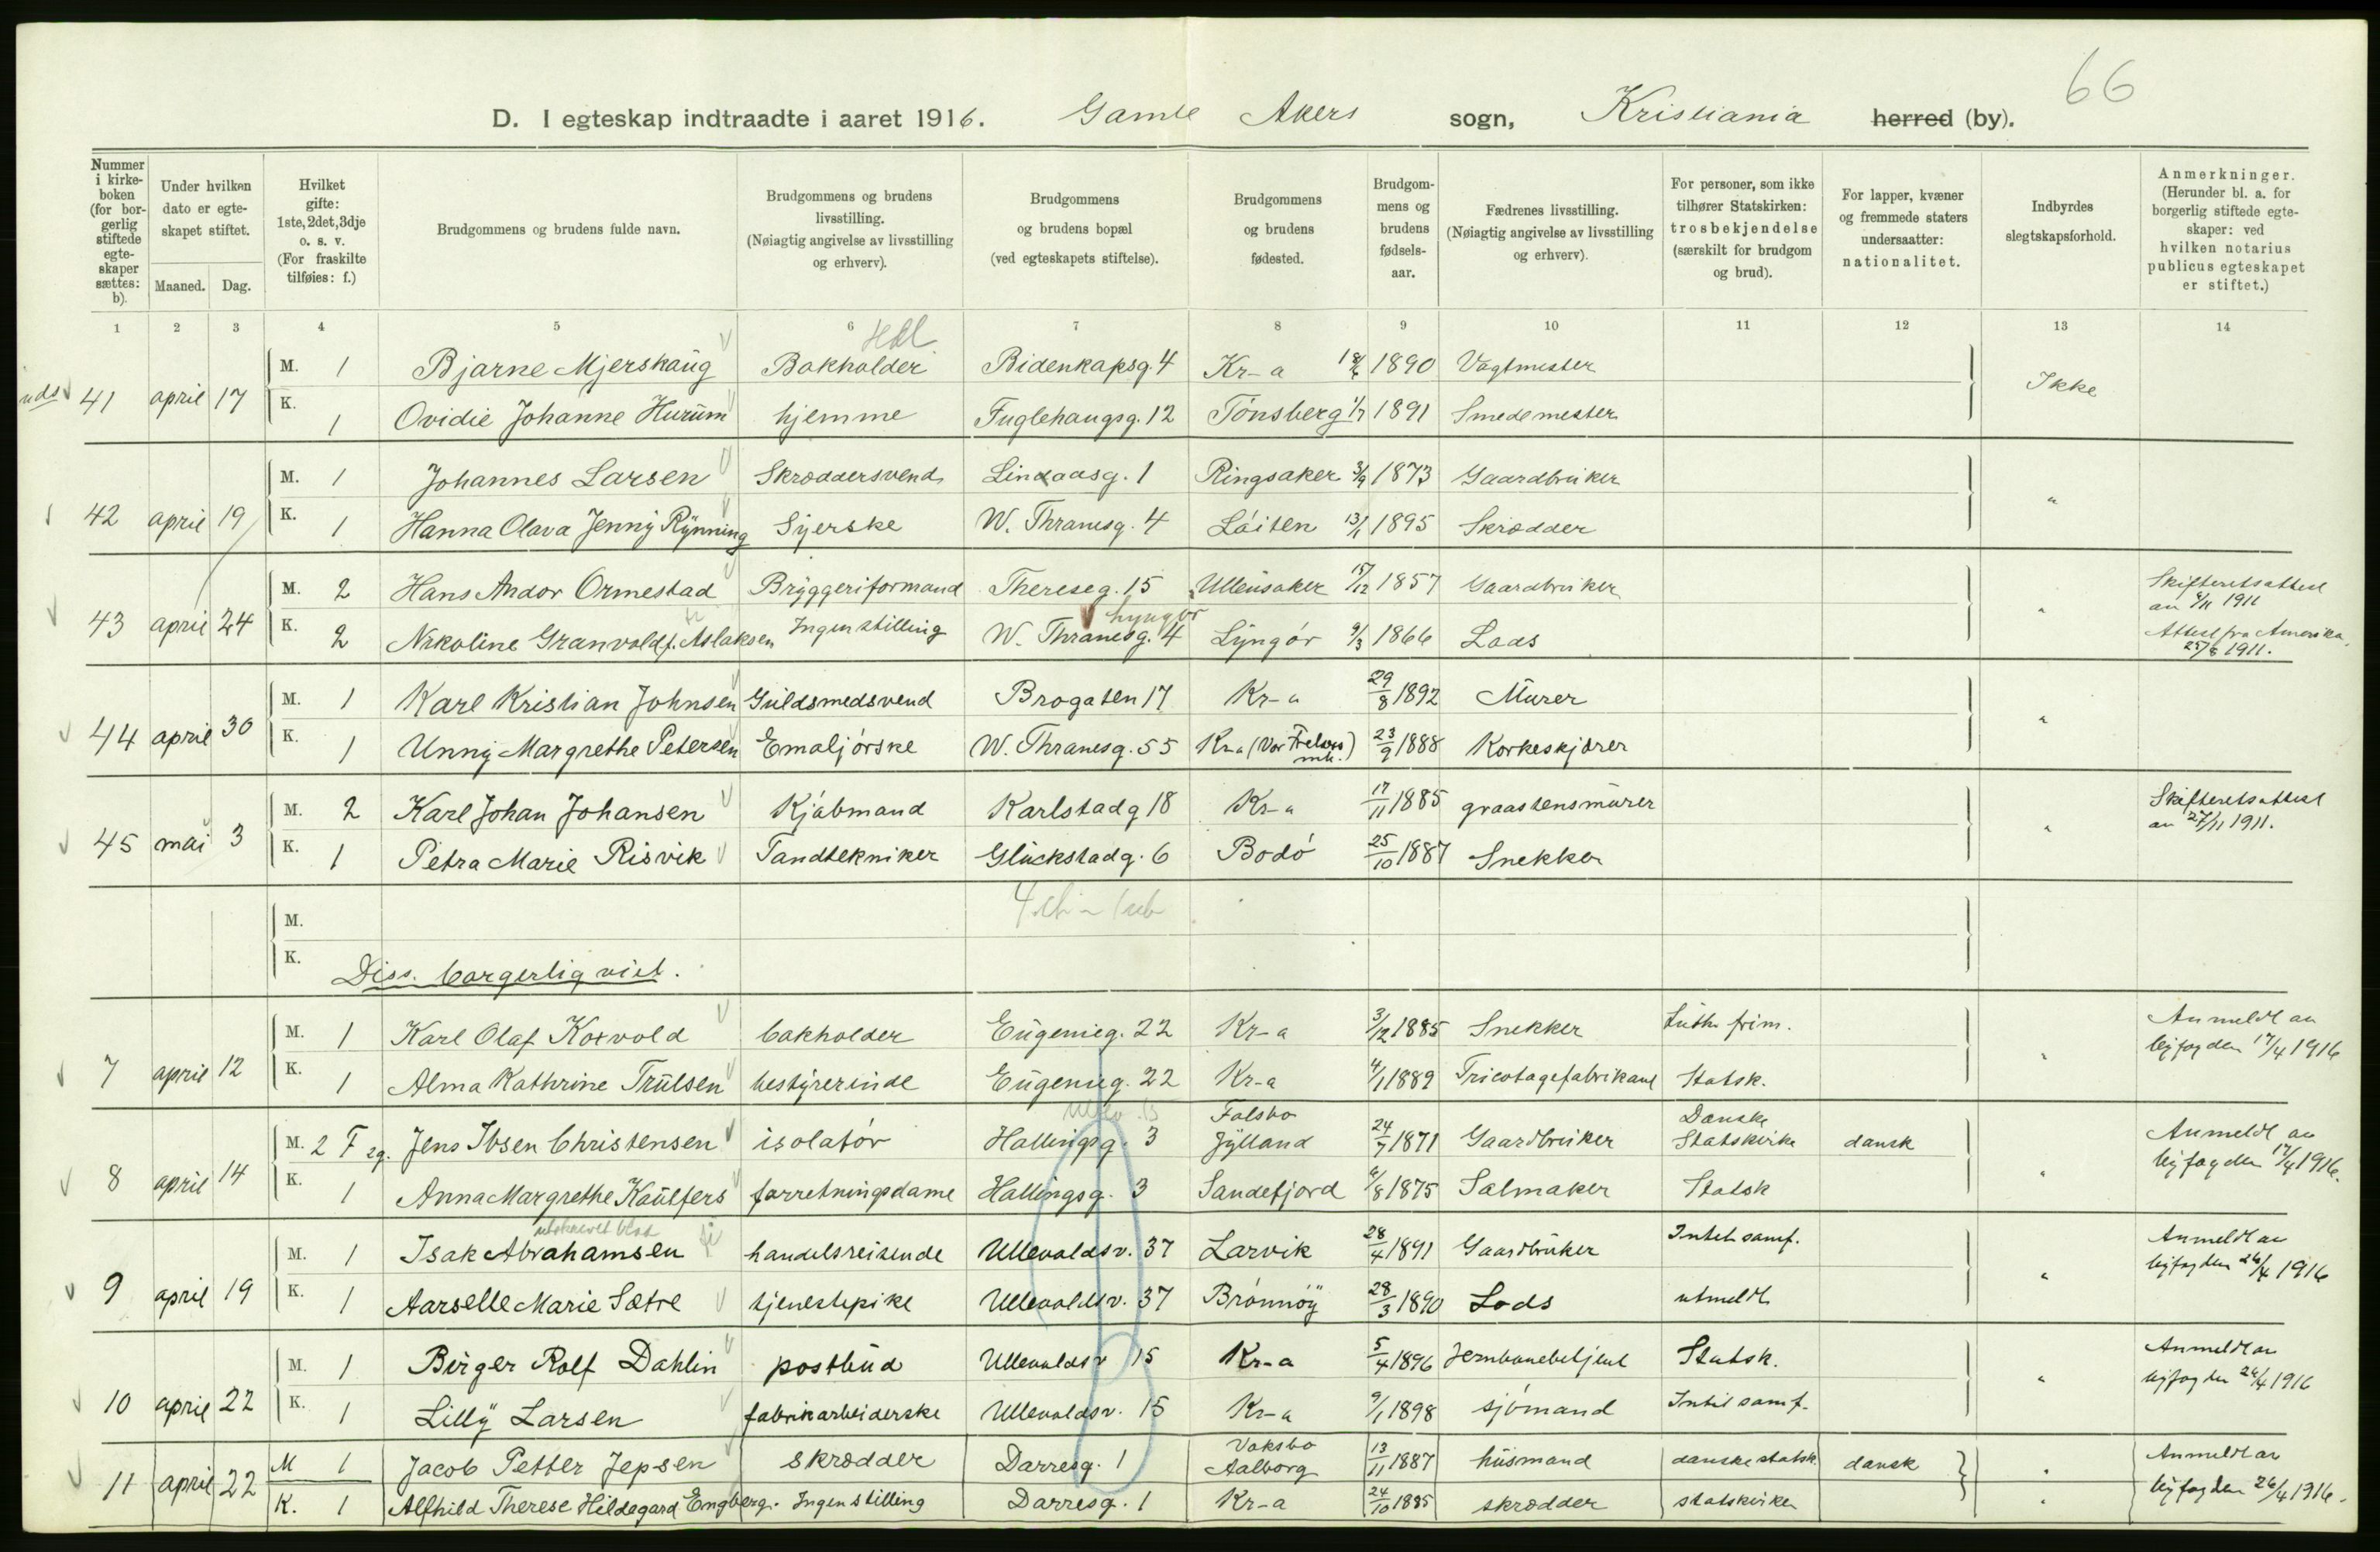 66
D. I egteskap indtraadte i aaret 1916. Gamle Akers sogn, Kristiania herred (by).
Nummer i kirkeboken (for borgerlig stiftede egteskaper sættes: b).
Under hvilken dato er egteskapet stiftet.
Maaned. Dag.
Hvilket gifte: 1ste, 2det, 3dje o. s. v. (For fraskilte tilføies: f.)
Brudgommens og brudens fulde navn.
Brudgommens og brudens livsstilling. (Nøiagtig angivelse av livsstilling og erhverv).
Brudgommens og brudens bopæl (ved egteskapets stiftelse).
Brudgommens og brudens fødested.
Brudgommens og brudens fødselsaar.
Fædrenes livsstilling. (Nøiagtig angivelse av livsstilling og erhverv).
For personer, som ikke tilhører Statskirken: trosbekjendelse (særskilt for brudgom og brud).
For lapper, kvæner og fremmede staters undersaatter: nationalitet.
Indbyrdes slegtskapsforhold.
Anmerkninger. (Herunder bl. a. for borgerlig stiftede egteskaper: ved hvilken notarius publicus egteskapet er stiftet.)
1 2 3 4 5 6 7 8 9 10 11 12 13 14
41 april 17 M. 1 Bjarne Mjerskaug Bokholder Bidenkapsg. 4 Kr-a 1890 Vagtmester Ikke
K. 1 Ovidie Johanne Hurum hjemme Fuglehaugsg. 12 Tönsberg 1/7 1891 Smedemester
42 april 19 M. 1 Johannes Larsen Skræddersvend Lindaasg. 1 Ringsaker 3/9 1873 Gaardbruker "
K. 1 Hanna Olava Jenny Rynning Syerske W. Thranesg. 4 Löiten 13/1 1895 Skrædder
43 april 24 M. 2 Hans Andor Ormestad Bryggeriformand Thereseg. 15 Ullensaker 15/12 1857 Gaardbruker " Skifteretsattest av 9/11 1911
K. 2 Nikoline Granvold f. Aslaksen Ingen stilling W. Thranesg. 4 Lyngör 9/3 1866 Lods Attest fra Amerika 25/8 1911.
44 april 30 M. 1 Karl Kristian Johnsen Guldsmedsvend Brogaten 17 Kr-a 29/8 1892 Murer "
K. 1 Unny Margrethe Petersen Emaljörske W. Thranesg. 55 Kr-a (Vor Frelsers mh.) 23/9 1888 Korkeskjærer
45 mai 3 M. 2 Karl Johan Johansen Kjöbmand Karlstadg 18 Kr-a 17/11 1885 graastensmurer " Skifteretsattest av 27/11 1911.
K. 1 Petra Marie Risvik Tandtekniker Glückstadg. 6 Bodö 25/10 1887 Snekker
M.
K. Diss. borgerlig viet.
7 april 12 M. 1 Karl Olaf Korvold bokholder Eugenieg. 22 Kr-a 3/12 1885 Snekker Luth. frim. " Anmeldt av byfogden 17/4 1916
K. 1 Alma Kathrine Trulsen bestyrerinde Eugenieg. 22 Kr-a 4/1 1889 Tricotagefabrikant Statsk.
8 april 14 M. 2 F Jens Ibsen Christensen isolatör Hallingsg. 3 Falsbo Jylland 24/7 1871 Gaardbruker Danske Statskirke dansk " Anmeldt av byfogden 17/4 1916.
K. 1 Anna Margrethe Kaulfers forretningsdame Hallingsg. 3 Sandefjord 6/8 1875 Salmaker Statsk
9 april 19 M. 1 Isak Abrahamsen handelsreisende Ullevoldsv. 37 Larvik 28/4 1891 Gaardbruker Intet samf. " Anmeldt av byfogden 26/4 1916
K. 1 Aarselle Marie Sætre tjenestepike Ullevoldsv. 37 Brönnöy 28/3 1890 Lods utmeldt
10 april 22 M. 1 Birger Rolf Dahlin postbud Ullevoldsv 15 Kr-a 5/4 1896 Jernbanebetjent Statsk. " Anmeldt av byfogden 26/4 1916
K. 1 Lilly Larsen fabrikarbeiderske Ullevoldsv. 15 Kr-a 9/1 1898 sjömand Intet samf.
11 april 22 M 1 Jacob Petter Jepsen skrædder Darresg. 1 Voksbo Aalborg 13/11 1887 husmand danske statsk dansk " Anmeldt av byfogden 26/4 1916.
K. 1 Alfhild Therese Hildegard Engberg. Ingen stilling Darresg. 1 Kr-a 24/10 1885 skrædder statskirken "